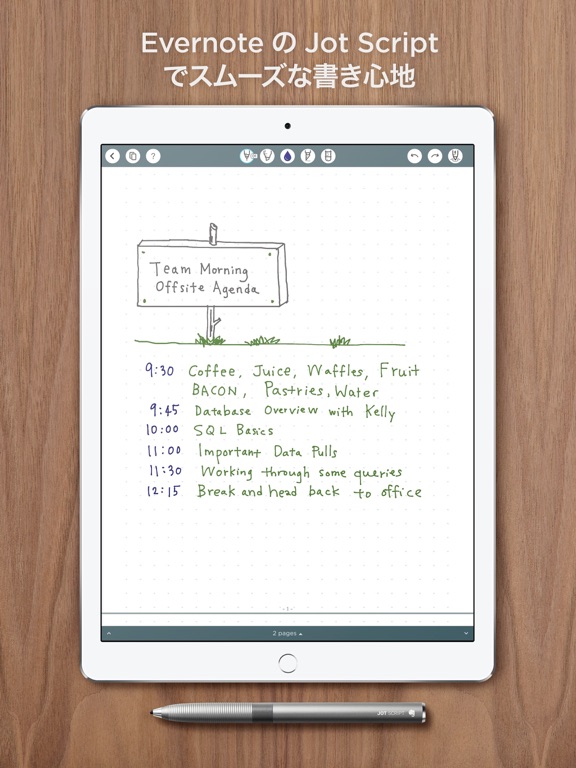 Evernote の Jot Script
でスムーズな書き心地
?
Team Morning
Offsite Agenda
9:30 Coffee, Juice, Waffles, Fruit
BACON, Pastries, Water
9:45 Database Overview with Kelly
10:00 SQL Basics
11:00 Important Data Pulls
11:30 Working through some queries
12:15 Break and head back to office
- 1 -
2 pages
JOT SCRIPT